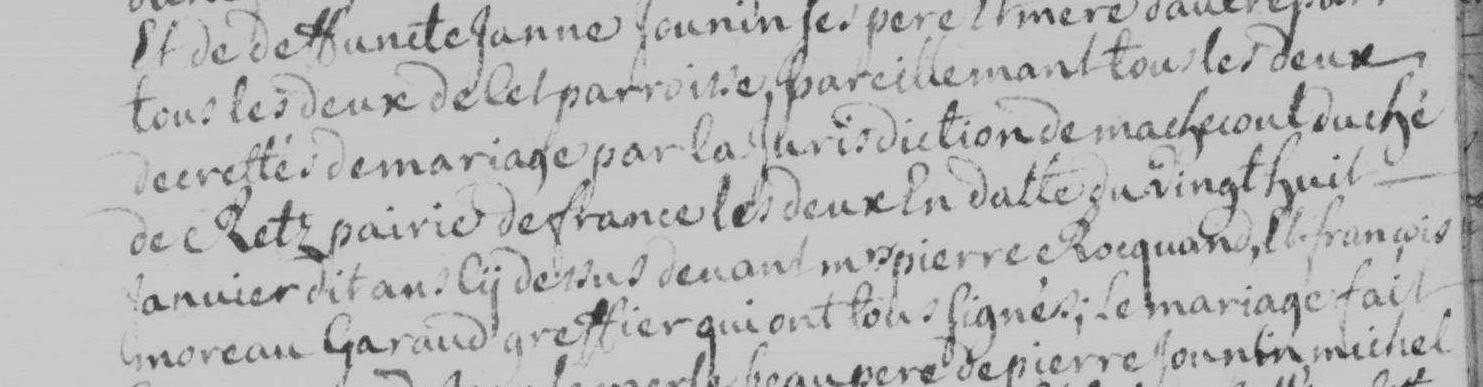 Et de deffuncte Janne Jounin ses pere Et mere d'autre part
tous les deux de Cet parroisse, pareillemant tous les deux
decrettés de mariage par la Jurisdiction de machecoul duché
de Retz pairie de france les deux En datte du vingt huit
Janvier dit ans Cÿ dessus devant mrs pierre Rocquand, Et françois
moreau Garaud greffier qui ont tous signés; Le mariage fait
beau pere de pierre Jounin, michel